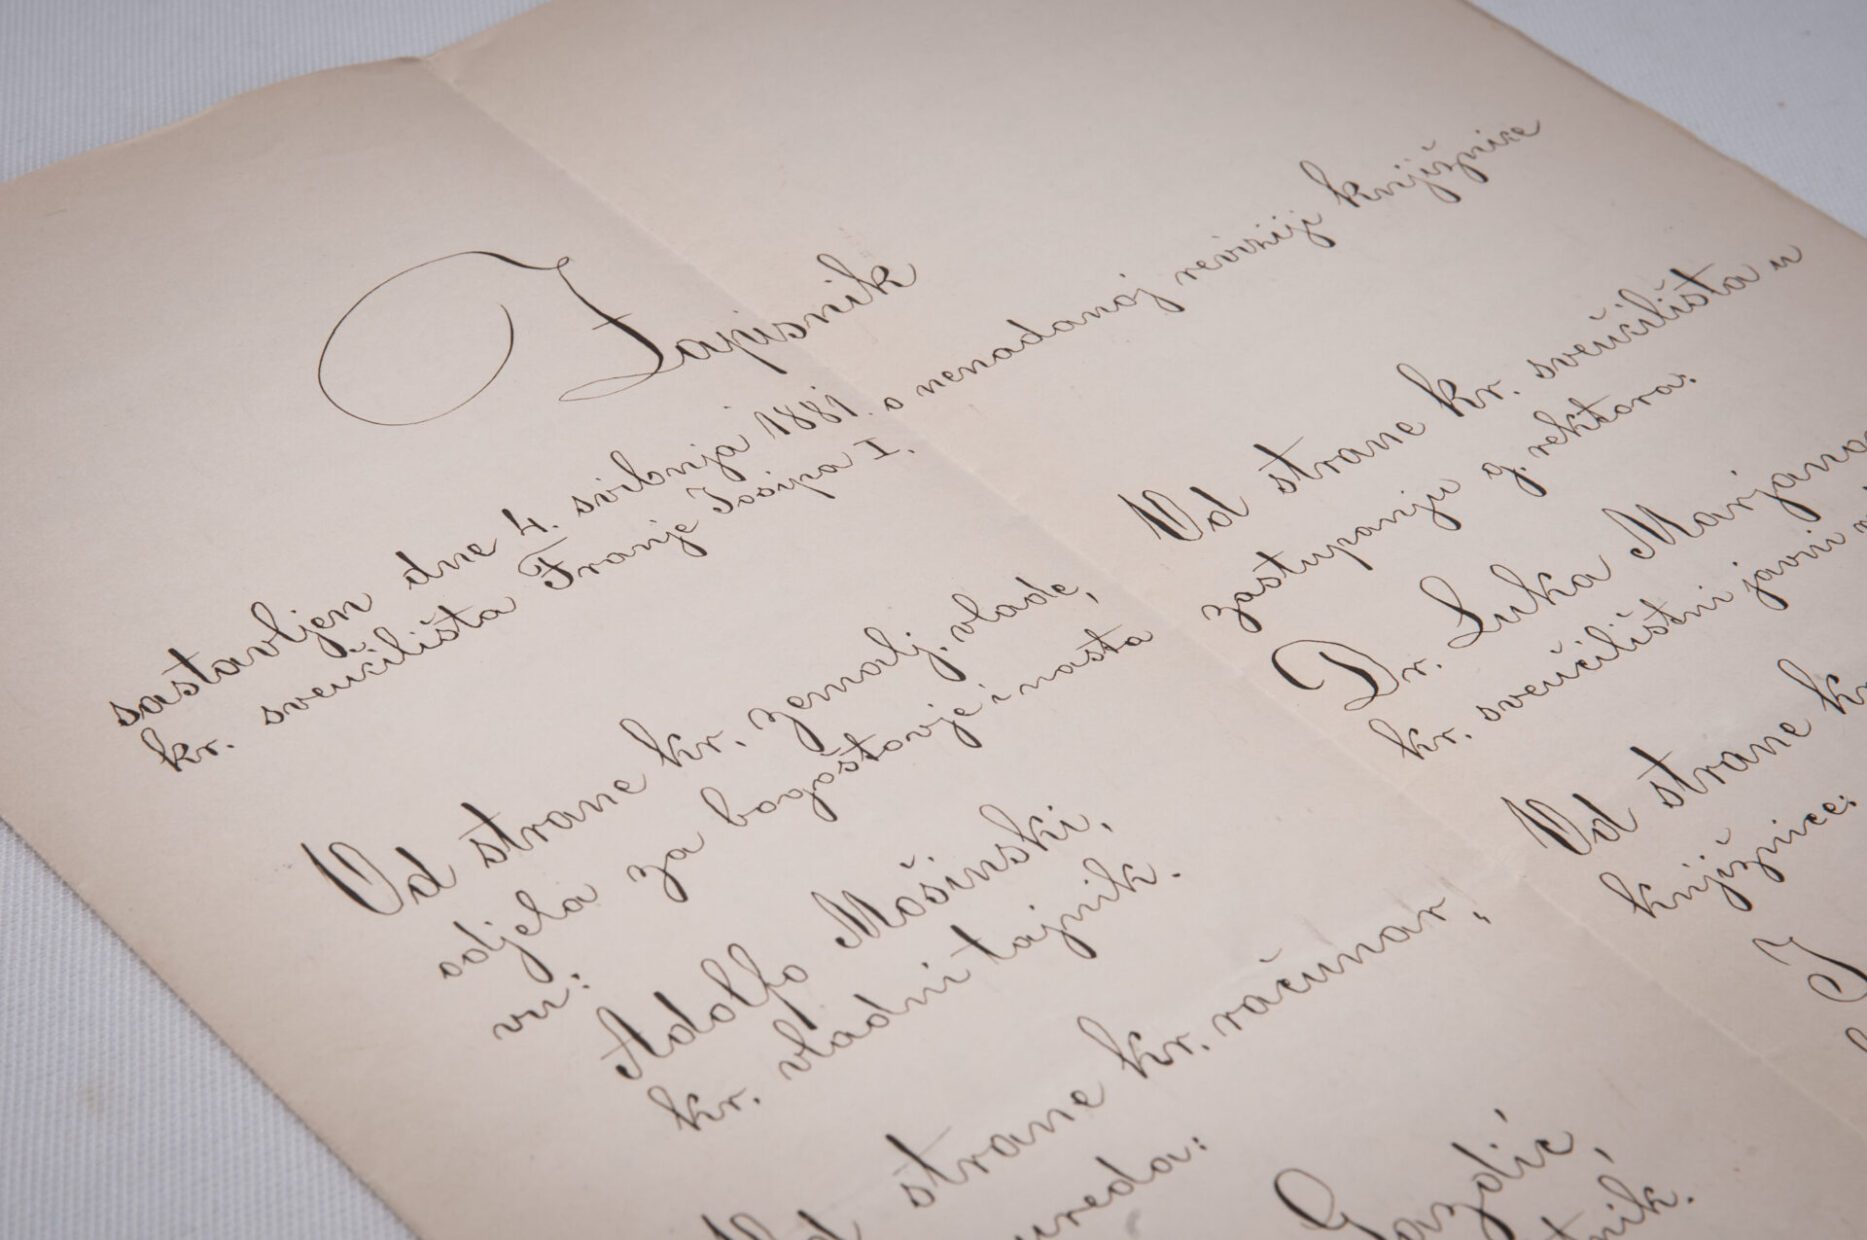 Zapisnik
sastavljen dne 4. svibnja 1881. o nenadanoj reviziji knjižnice
kr. sveučilišta Franje Josipa I.
Od strane kr. zemalj. vlade,
odjela za bogoštovje i nasta
vu:
Adolfo Mošinski,
kr. vladni tajnik.
strane kr. računar„
ureda:
Gazdić,
Od strane kr. sveučilišta u
zastupanju g. rektora:
Dr. Luka Marjano
kr. sveučilištni javni
Od strane k
knjižnice: